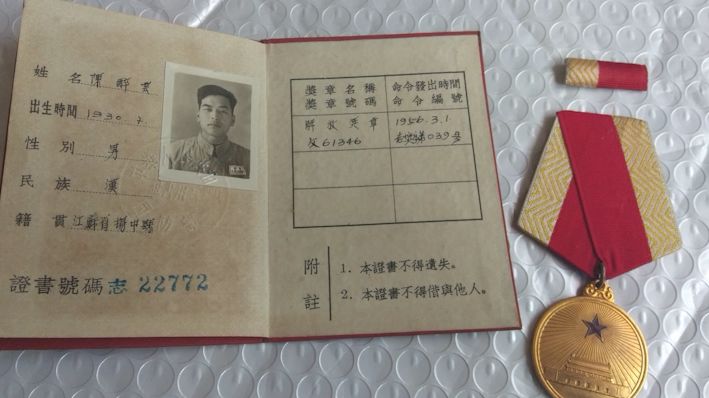 姓名陳
出生時間 1930.7.
性別 男
民族 漢
籍貫 江蘇省揚中縣
證書號碼 志 22772
獎章名稱 命令發出時間
獎章號碼 命令編號
解放奖章 1956.3.1
61346 039
附註
1. 本證書不得遺失。
2. 本證書不得借與他人。